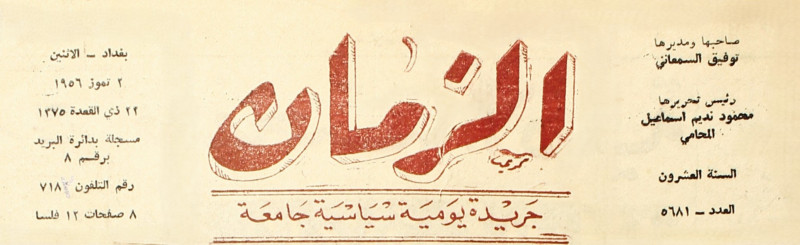 صاحبها ومديرها
توفيق السمعاني
رئيس تحريرها
محمود نديم اسماعيل
المحامي
السنة العشرون
العدد – ٥٦٨١
الزمان
جريدة يومية سياسية جامعة
بغداد – الاثنين
٢ تموز ١٩٥٦
٢٢ ذي القعدة ١٣٧٥
مسجلة بدائرة البريد
برقم ٨
رقم التلفون ٧١٨
٨ صفحات ١٢ فلسا